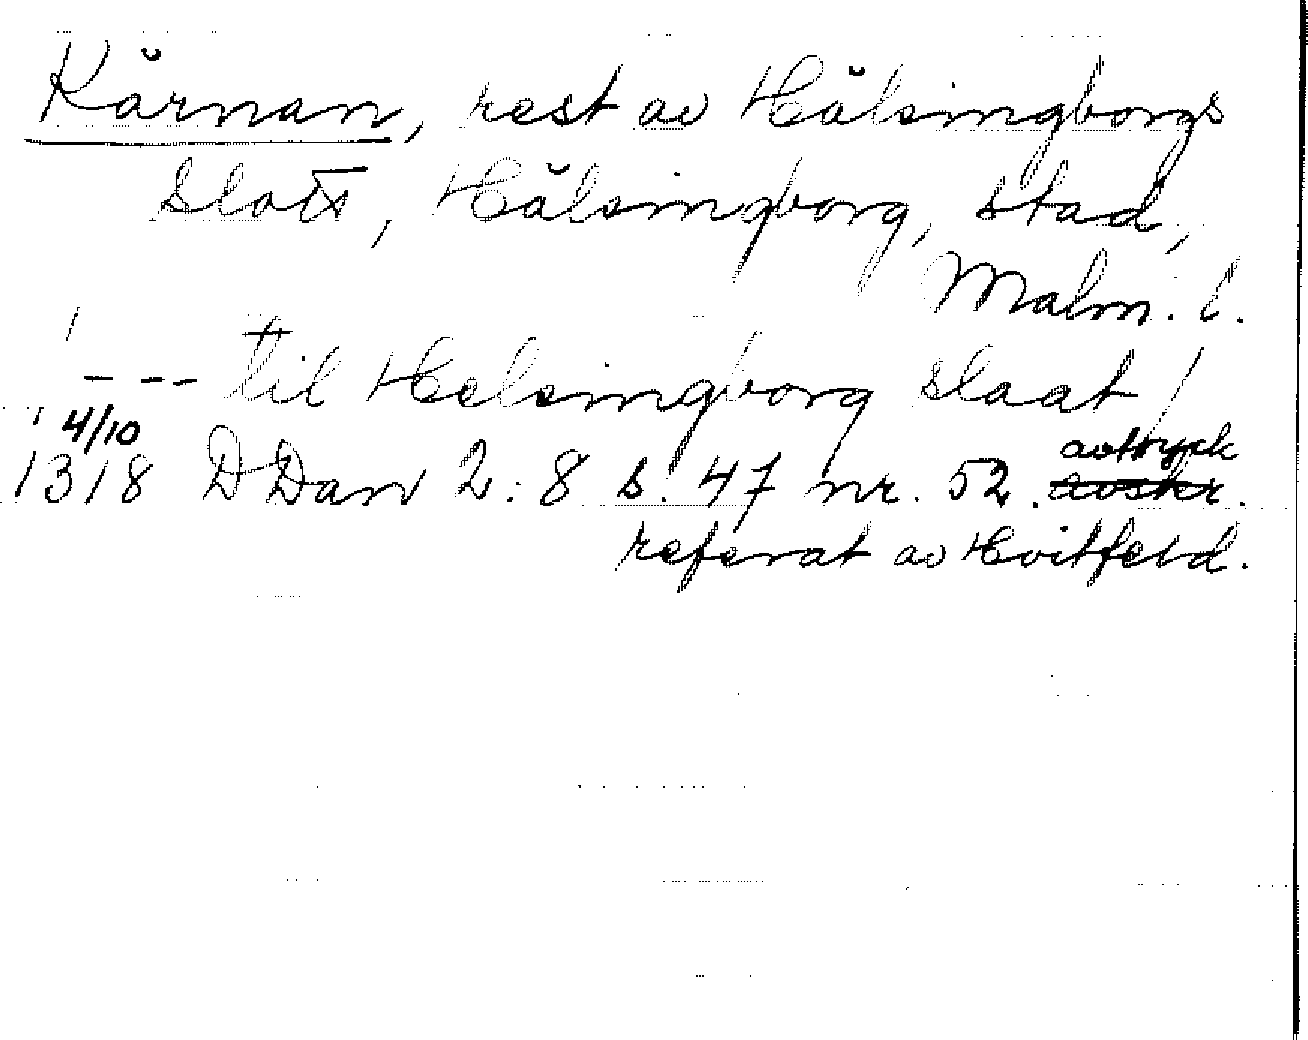 Kärnan, rest av Hälsingborgs
slott, Hälsingborg, stad,
Malm. l.
--- til Helsingborg slaat /
4/10 avtryck
1318 DDan 2:8 s. 47 nr. 52. avskr.
referat av Hvitfeld.